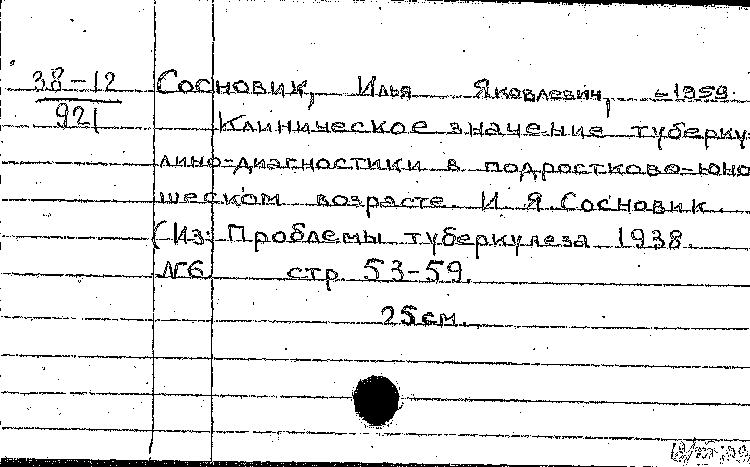 38-12 Сосновик, Илья Яковлевич, -1959.
921 Клиническое значение туберку-
лино-диагностики в подростково-юно
шеском возрасте. И. Я. Сосновик.
(Из: Проблемы туберкулеза 1938.
№6 стр. 53-59.
25 см.